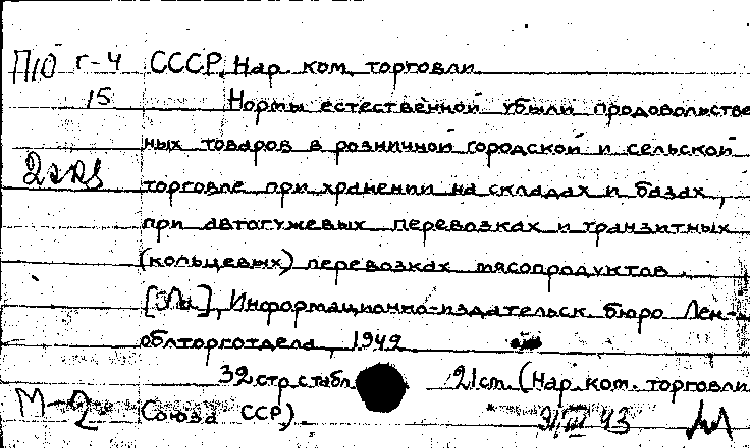 П10 г-4 СССР. Нар. ком. торговли.
15 Нормы естественной убыли продовольстве
ных товаров в розничной городской и сельской
торговле при хранении на складах и базах,
при автогужевых перевозках и транзитных
(кольцевых) перевозках мясопродуктов.
[Л.], Информационно-издательск. бюро Лен-
облторготдела, 1942.
32 стр. с табл. 21 см. (Нар. ком. торговли
М-2 Союза ССР).